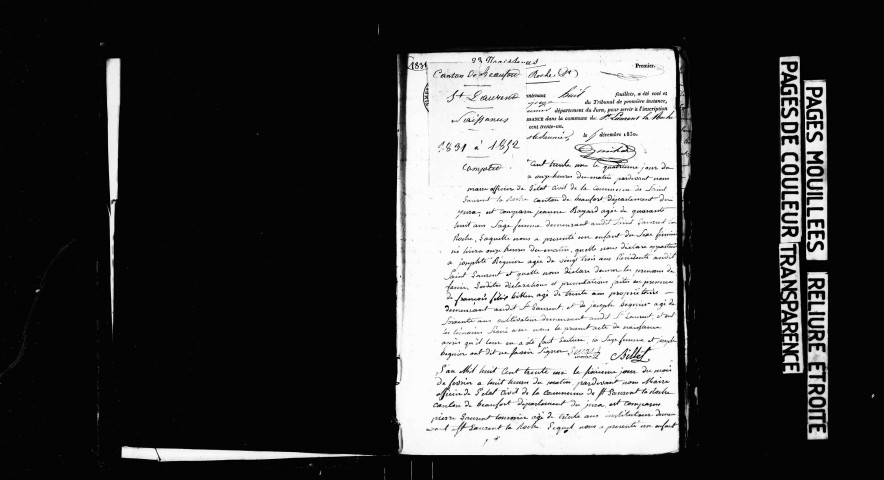 1831
23 Naissances
Premier.
Canton De Beaufort
Roche, (St)
St Laurent
contenant huit feuillets, a été coté et
du Tribunal de première instance,
Naissances
département du Jura, pour servir à l'inscription
dans la commune de St Laurent la Roche
cent trente-un.
1831 à 1852
le décembre 1830.
Complet
cent trente un le quatrième jour du
à onze heures du matin pardevant nous
maire officier de l'état civil de la commune de Saint
Laurent la Roche canton de beaufort département du
jura, est comparu jeanne Bayard agée de quarante
huit ans Sage femme demeurant audit Saint Laurent la
Roche, Laquelle nous a presenté un enfant du Sexe feminin
né onze heures du matin, quelle nous déclare
a josephte Reguier agée de vingt trois ans Residente audit
Saint Laurent et quelle nous déclare donner les prenoms de
Lesdites declarations et presentations faites en presence
de françois billet agé de trente ans propriétaire
demeurant audit St Laurent, et de joseph Reguier agé de
Soixante ans cultivateur demeurant audit St Laurent, et ont
les témoins Signé avec nous le present acte de naissance
après qu'il leur en a été fait Lecture, la Sage femme et joseph
Reguier ont dit ne Savoir Signer Billet
L'an Mil huit Cent trente un le jour du mois
de fevrier a huit heures du matin pardevant nous Maire
officier de l'etat Civil de la commune de St Laurent la Roche
canton de beaufort département du jura est comparu
pierre Laurent agé de trente ans instituteur
a St Laurent la Roche Lequel nous a presenté un enfant
PAGES MOUILLEES
RELIURE ETROITE
PAGES DE COULEUR
TRANSPARENCE